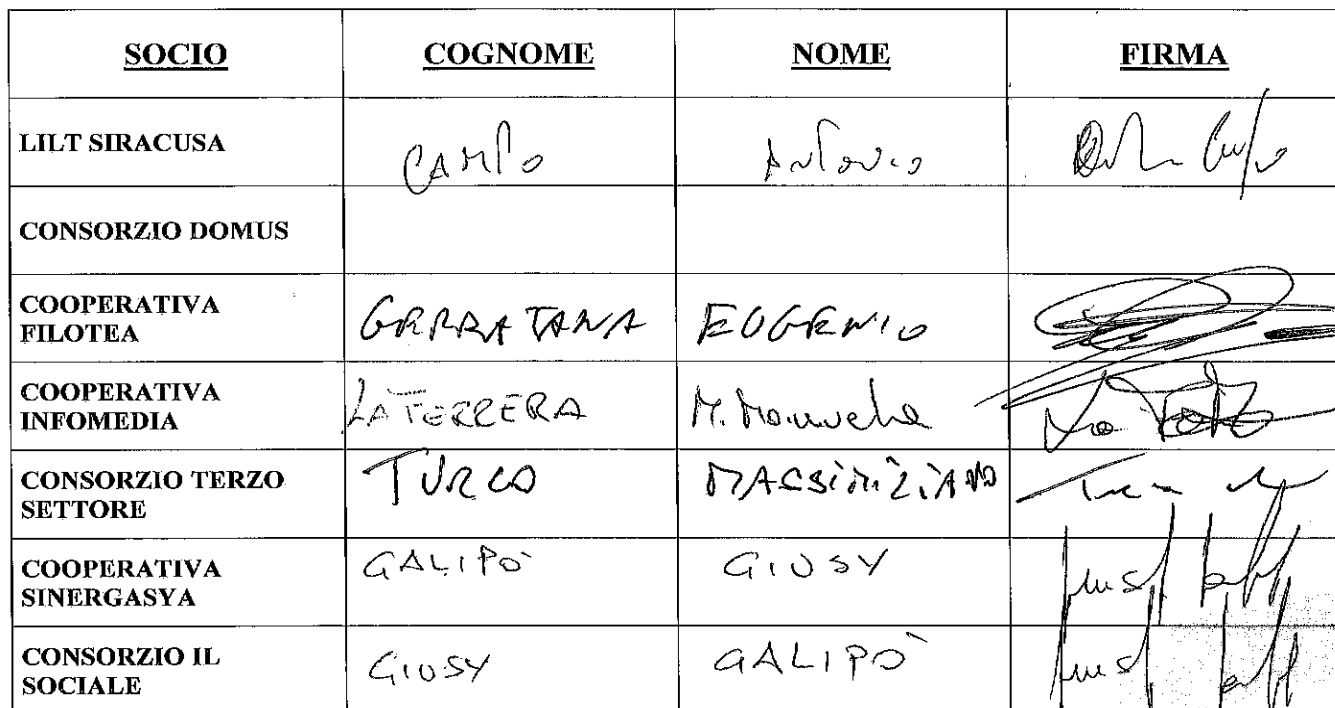 SOCIO COGNOME NOME FIRMA
LILT SIRACUSA CAMPO ANTONIO
CONSORZIO DOMUS
COOPERATIVA
FILOTEA GERRATANA EUGENIO
COOPERATIVA
INFOMEDIA LA TERRERA M. Manuela
CONSORZIO TERZO
SETTORE TURCO MASSIMIZIANO
COOPERATIVA
SINERGASYA GALIPÒ GIUSY
CONSORZIO IL
SOCIALE GIUSY GALIPÒ